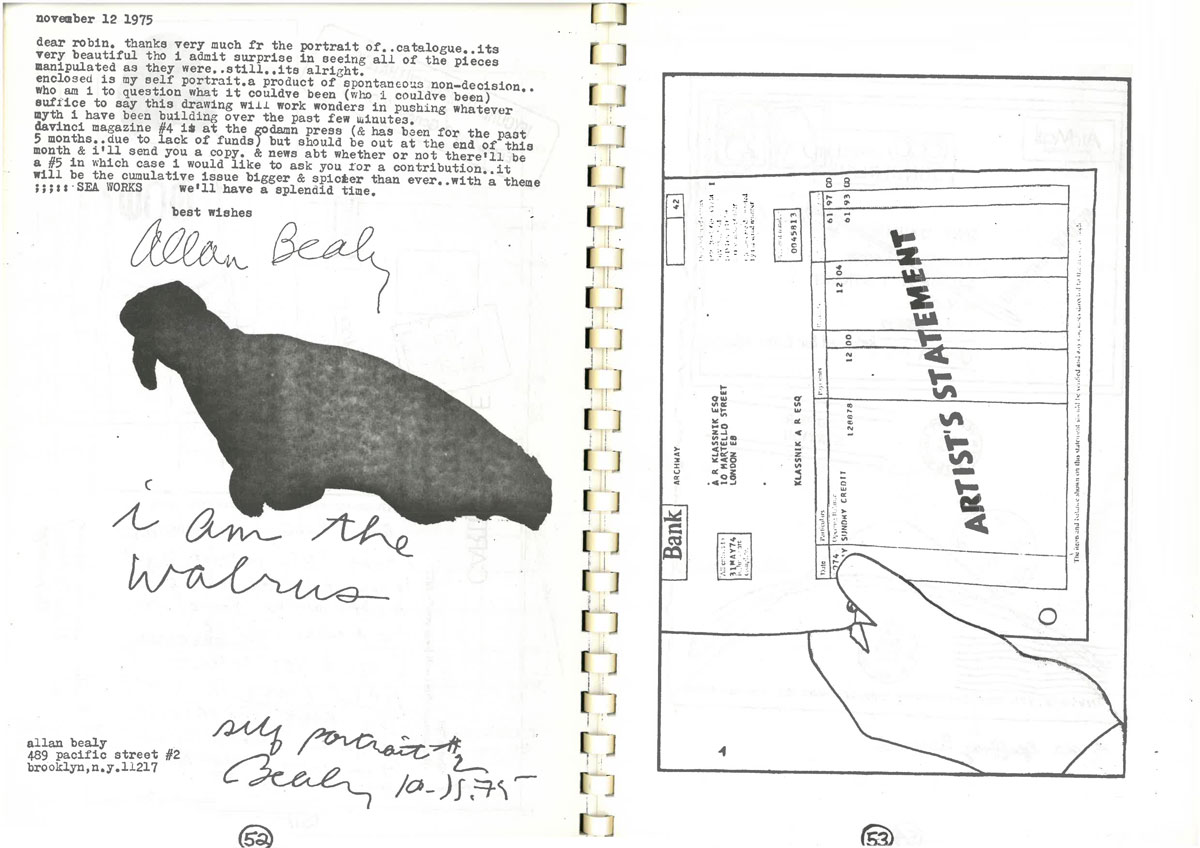 november 12 1975
dear robin. thanks very much fr the portrait of..catalogue..its
very beautiful tho i admit surprise in seeing all of the pieces
manipulated as they were..still..its alright.
enclosed is my self portrait.a product of spontaneous non-decision..
who am i to question what it couldve been (who i couldve been)
suffice to say this drawing will work wonders in pushing whatever
myth i have been building over the past few minutes.
davinci magazine #4 is at the godamn press (& has been for the past
5 months..due to lack of funds) but should be out at the end of this
month & i'll send you a copy. & news abt whether or not there'll be
a #5 in which case i would like to ask you for a contribution..it
will be the cumulative issue bigger & spicier than ever..with a theme
;;;:: SEA WORKS we'll have a splendid time.
best wishes
Allan Bealy
i am the
walrus
self portrait #2
Bealy 10-15.75
allan bealy
489 pacific street #2
brooklyn,n.y.11217
52
Bank
ARCHWAY
42
31MAY74
A R KLASSNIK ESQ
10 MARTELLO STREET
LONDON E8
0045813
KLASSNIK A R ESQ
Date
Particulars
Payments
SUNDRY CREDIT
128878
12 00
12 04
61 97 00
61 93 00
ARTIST'S STATEMENT
4
53